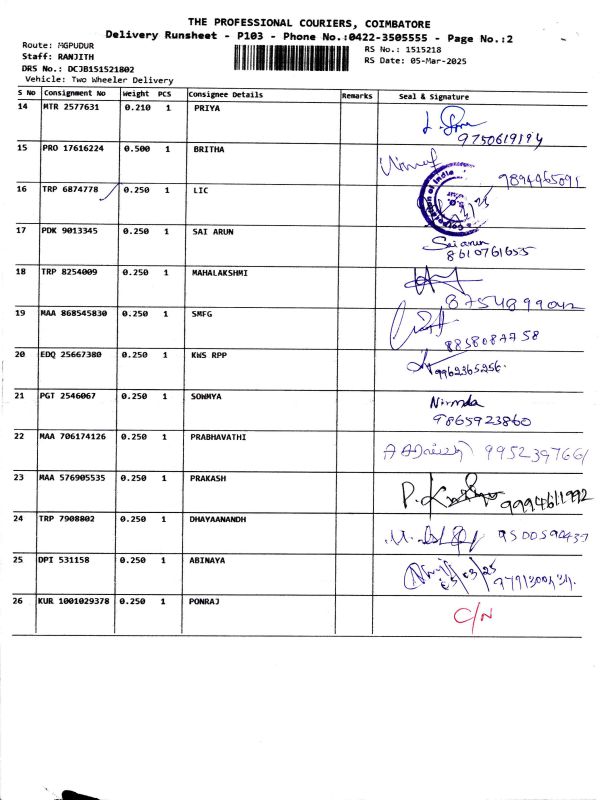 THE PROFESSIONAL COURIERS, COIMBATORE
Delivery Runsheet - P103 - Phone No.:0422-3505555 - Page No.:2
Route: MGPUDUR
RS No.: 1515218
Staff: RANJITH
RS Date: 05-Mar-2025
DRS No.: DCJB151521802
Vehicle: Two Wheeler Delivery
S No Consignment No Weight PCS Consignee Details Remarks Seal & Signature
14 MTR 2577631 0.210 1 PRIYA
9750619194
15 PRO 17616224 0.500 1 BRITHA
9894465091
16 TRP 6874778 0.250 1 LIC
17 PDK 9013345 0.250 1 SAI ARUN Sai arun
8610761655
18 TRP 8254009 0.250 1 MAHALAKSHMI
8754899042
19 MAA 868545830 0.250 1 SMFG
20 EDQ 25667380 0.250 1 KWS RPP
9962365256.
21 PGT 2546067 0.250 1 SOWMYA
9865923860
22 MAA 706174126 0.250 1 PRABHAVATHI
23 MAA 576905535 0.250 1 PRAKASH
9994611992
24 TRP 7908802 0.250 1 DHAYAANANDH
25 DPI 531158 0.250 1 ABINAYA
26 KUR 1001029378 0.250 1 PONRAJ C/N